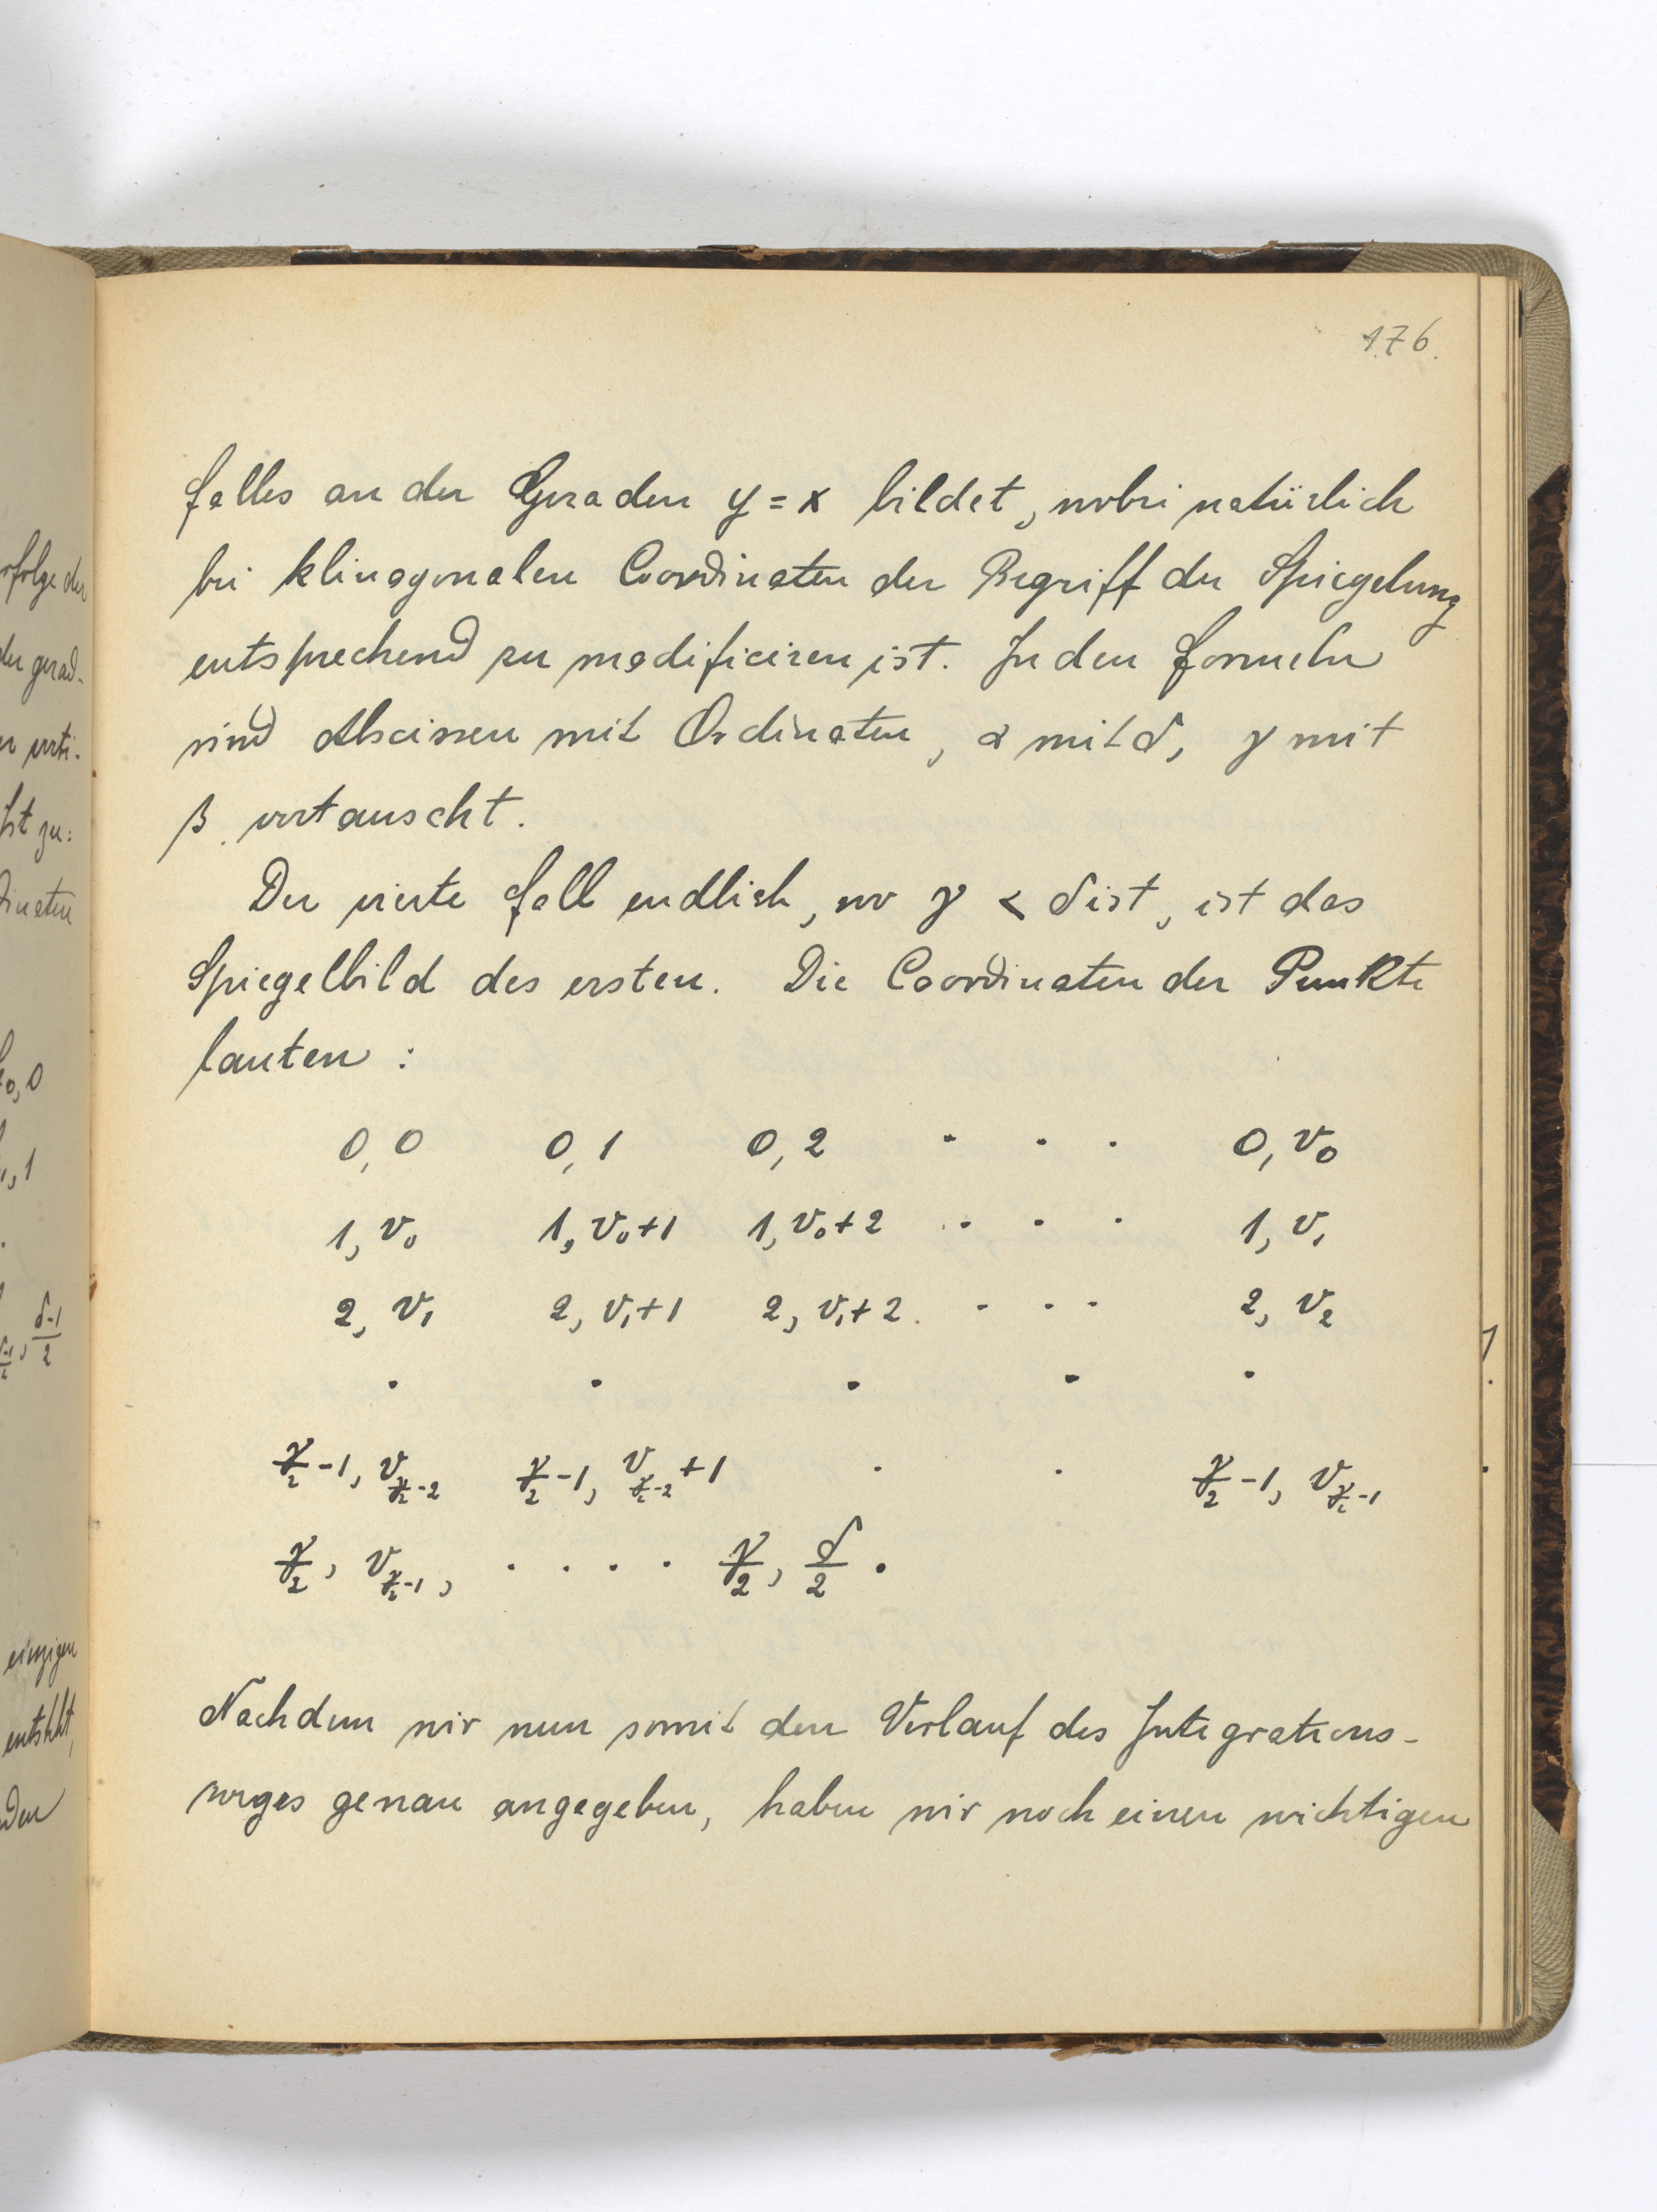 176.
falles an der Geraden y = x bildet, wobei natürlich
bei klinogonalen Coordinaten der Begriff der Spiegelung
entsprechend zu modificiren ist. In den Formeln
sind Abscissen mit Ordinaten, α mit δ, γ mit
β vertauscht.
Der vierte Fall endlich, wo γ < δ ist, ist das
Spiegelbild des ersten. Die Coordinaten der Punkte
lauten :
0, 0 0, 1 0, 2 . . . 0, v₀
1, v₀ 1, v₀+1 1, v₀+2 . . . 1, v₁
2, v₁ 2, v₁+1 2, v₁+2 . . . 2, v₂
. . . . .
γ/2 -1, v_{γ/2 -2} γ/2 -1, v_{γ/2 -2} +1 . . γ/2 -1, v_{γ/2 -1}
γ/2, v_{γ/2 -1}, . . . . γ/2, δ/2 .
Nachdem wir nun somit den Verlauf des Integrations-
weges genau angegeben, haben wir noch einen wichtigen